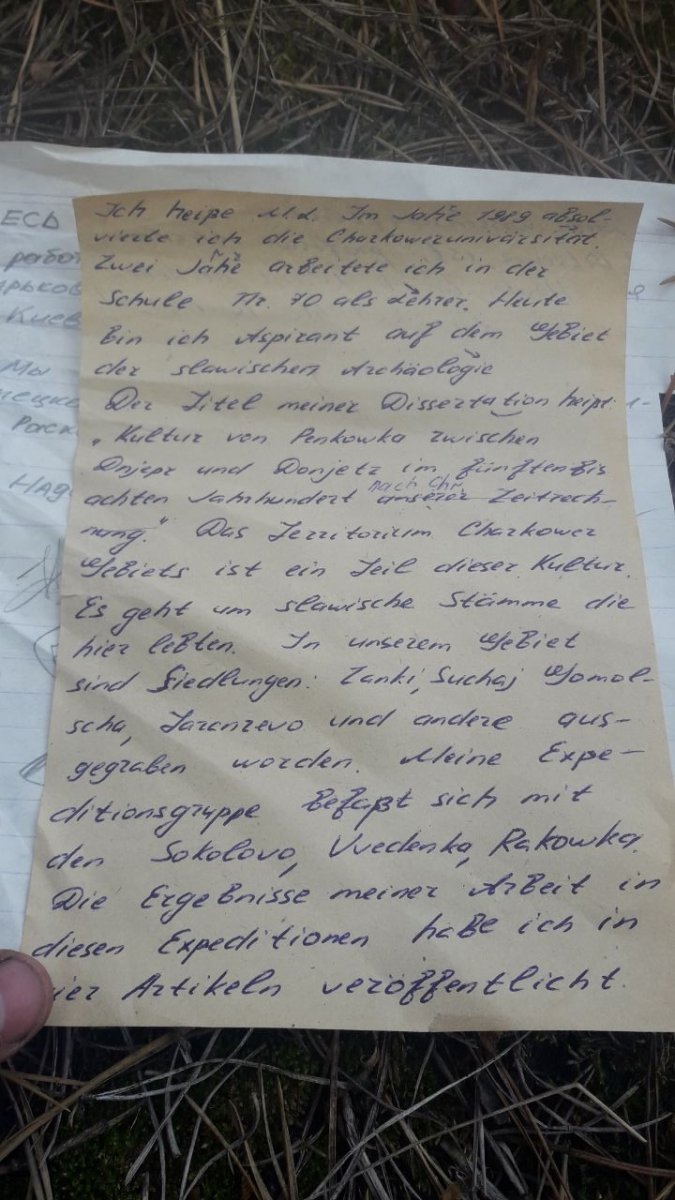 Ich heiße M.L. Im Jahre 1989 absol-
vierte ich die Charkoweruniversität.
Zwei Jahre arbeitete ich in der
Schule Nr. 70 als Lehrer. Heute
bin ich Aspirant auf dem Gebiet
der slawischen Archäologie
Der Titel meiner Dissertation heißt
„Kultur von Penkowka zwischen
Dnjepr und Donjetz im fünften bis
nach Chr.
achten Jahrhundert unserer Zeitrech-
nung." Das Territorium Charkower
Gebiets ist ein Teil dieser Kultur.
Es geht um slawische Stämme die
hier lebten. In unserem Gebiet
sind Siedlungen: Zanki, Suchaj Gomol-
scha, Tarenzevo und andere aus-
gegraben worden. Meine Expe-
ditionsgruppe befaßt sich mit
den Sokolovo, Vvedenka, Rakowka.
Die Ergebnisse meiner Arbeit in
diesen Expeditionen habe ich in
vier Artikeln veröffentlicht.
ЕСЬ
работ
Киев
Мы